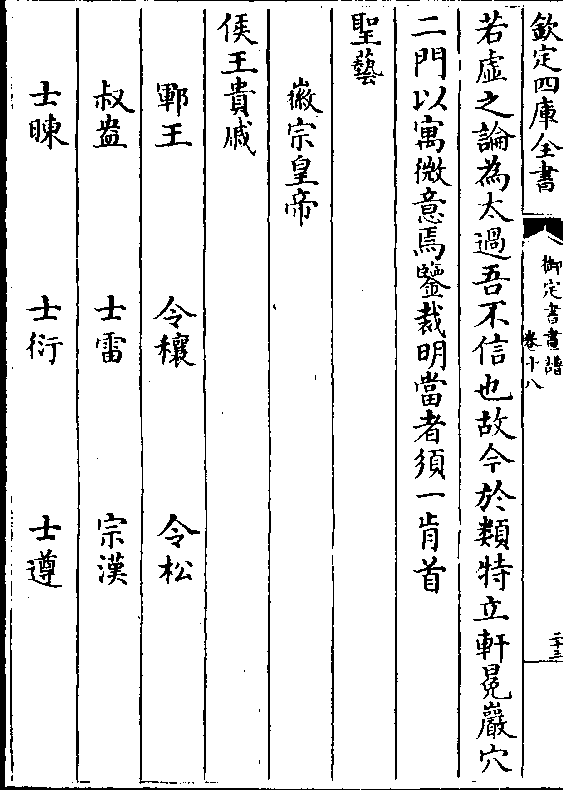 欽定四庫全書
御定書畫譜
卷十八
二十三
若虛之論為太過吾不信也故今於類特立軒冕巖穴
二門以寓微意焉鑒裁明當者須一肯首
聖藝
徽宗皇帝
侯王貴戚
鄆王
令穰
令松
叔盎
士雷
宗漢
士暕
士衍
士遵